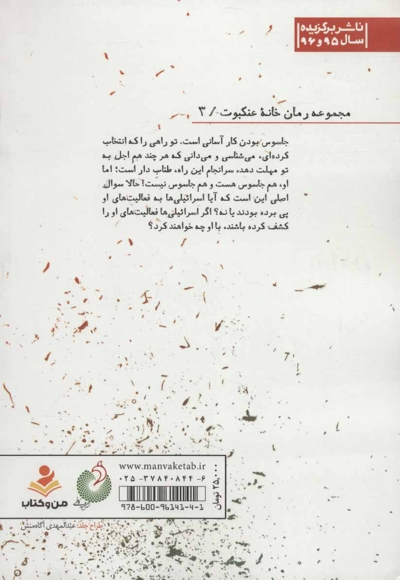 ناشر برگزیده
سال ۹۵ و ۹۶
مجموعه رمان خانهٔ عنکبوت / ۳
جاسوس بودن کار آسانی است. تو راهی را که انتخاب
کرده‌ای، می‌شناسی و می‌دانی که هر چند هم اجل به
تو مهلت دهد، سرانجام این راه، طناب دار است؛ اما
او، هم جاسوس هست و هم جاسوس نیست! حالا سوال
اصلی این است که آیا اسرائیلی‌ها به فعالیت‌های او
پی برده بودند یا نه؟ اگر اسرائیلی‌ها فعالیت‌های او را
کشف کرده باشند، با او چه خواهند کرد؟
www.manvaketab.ir
۰۲۵-۳۷۸۴۰۸۴۴-۶
978-600-96141-4-1
۲۵,۰۰۰ تومان
من و کتاب
طراح جلد: عبدالمهدی آگاه‌منش